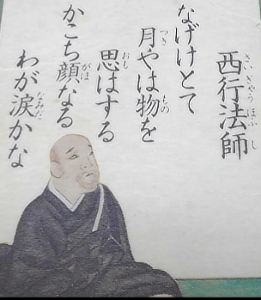 西行法師
なげけとて
月やは物を
思はする
かこち顔なる
わが涙かな